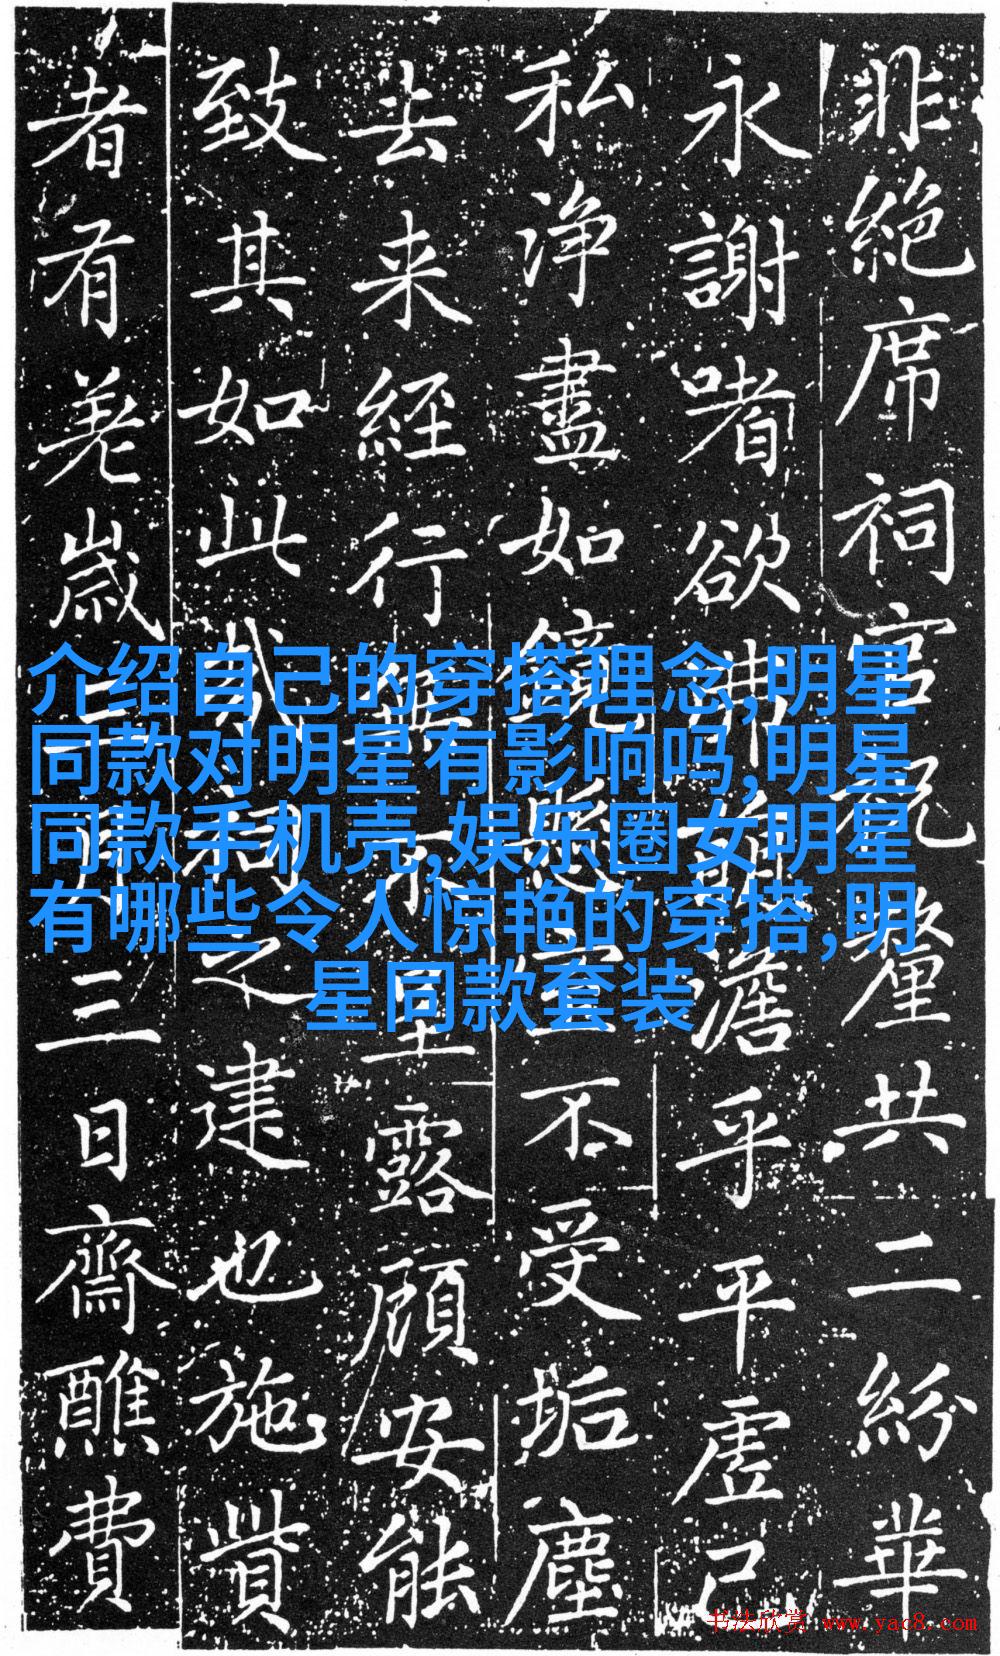 非絕席祠官祝釐共二紛華
永謝嗜欲澹乎平虛己
私淨盡如鏡懸空不受垢塵
去来經行無不呈露顧安能
致其如此哉祠之建也施貲
者有歲三日齋醮費
介绍自己的穿搭理念,明星
同款对明星有影响吗,明星
同款手机壳,娱乐圈女明星
有哪些令人惊艳的穿搭,明
星同款套装
书法欣赏 www.yac8.com